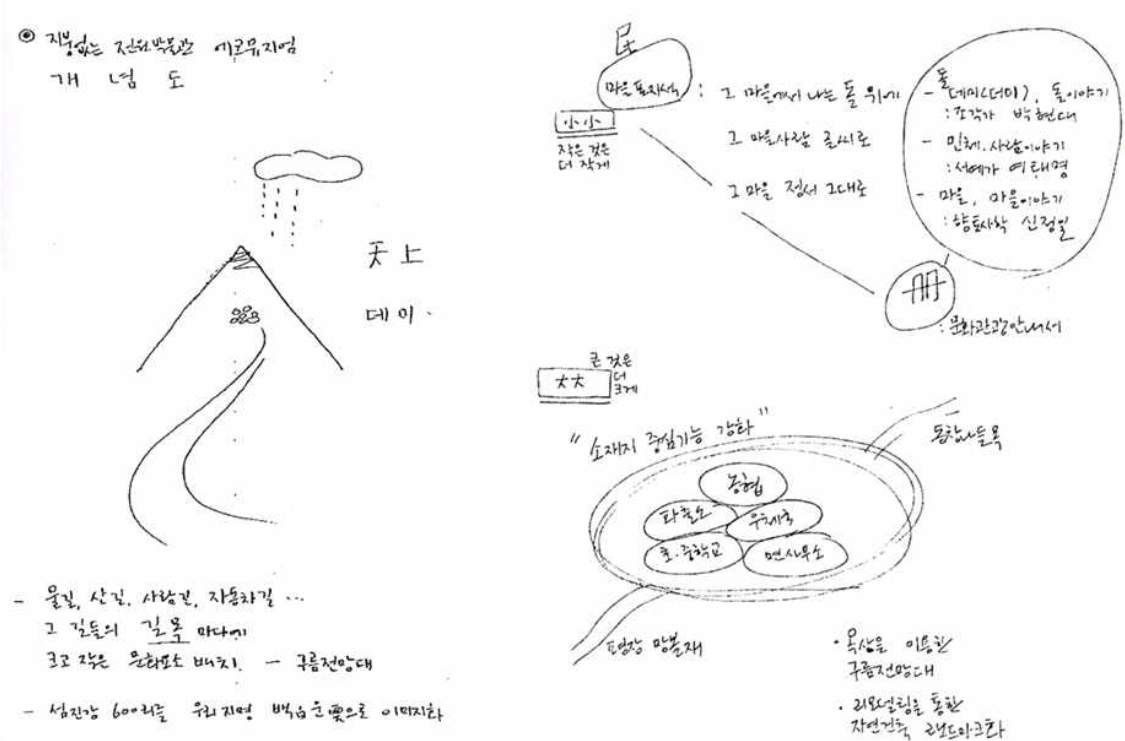 ◉ 지붕없는 전원박물관 에코뮤지엄
개 념 도
天上
데미.
- 물길, 산길, 사람길, 자동차길 ...
그 길들의 길목 마다에
크고 작은 문화포소 배치. - 구름전망대
- 섬진강 600리를 우리지명 백운으로 이미지화
民
마을표지석
: 그 마을에서 나는 돌 위에
그 마을사람 글씨로
그 마을 정서 그대로
小小
작은 것은
더 작게
돌
- 데미(더미), 돌이야기
: 조각가 박현대
- 민체. 사람이야기
: 서예가 여태명
- 마을, 마을이야기
: 향토사학 신정일
冊
: 문화관광안내서
큰 것은
더
크게
大大
"소재지 중심기능 강화"
농협
파출소
우체국
초.중학교
면사무소
동창나들목
망봉재
• 옥상을 이용한
구름전망대
• 리모델링을 통한
자연건축 랜드마크화